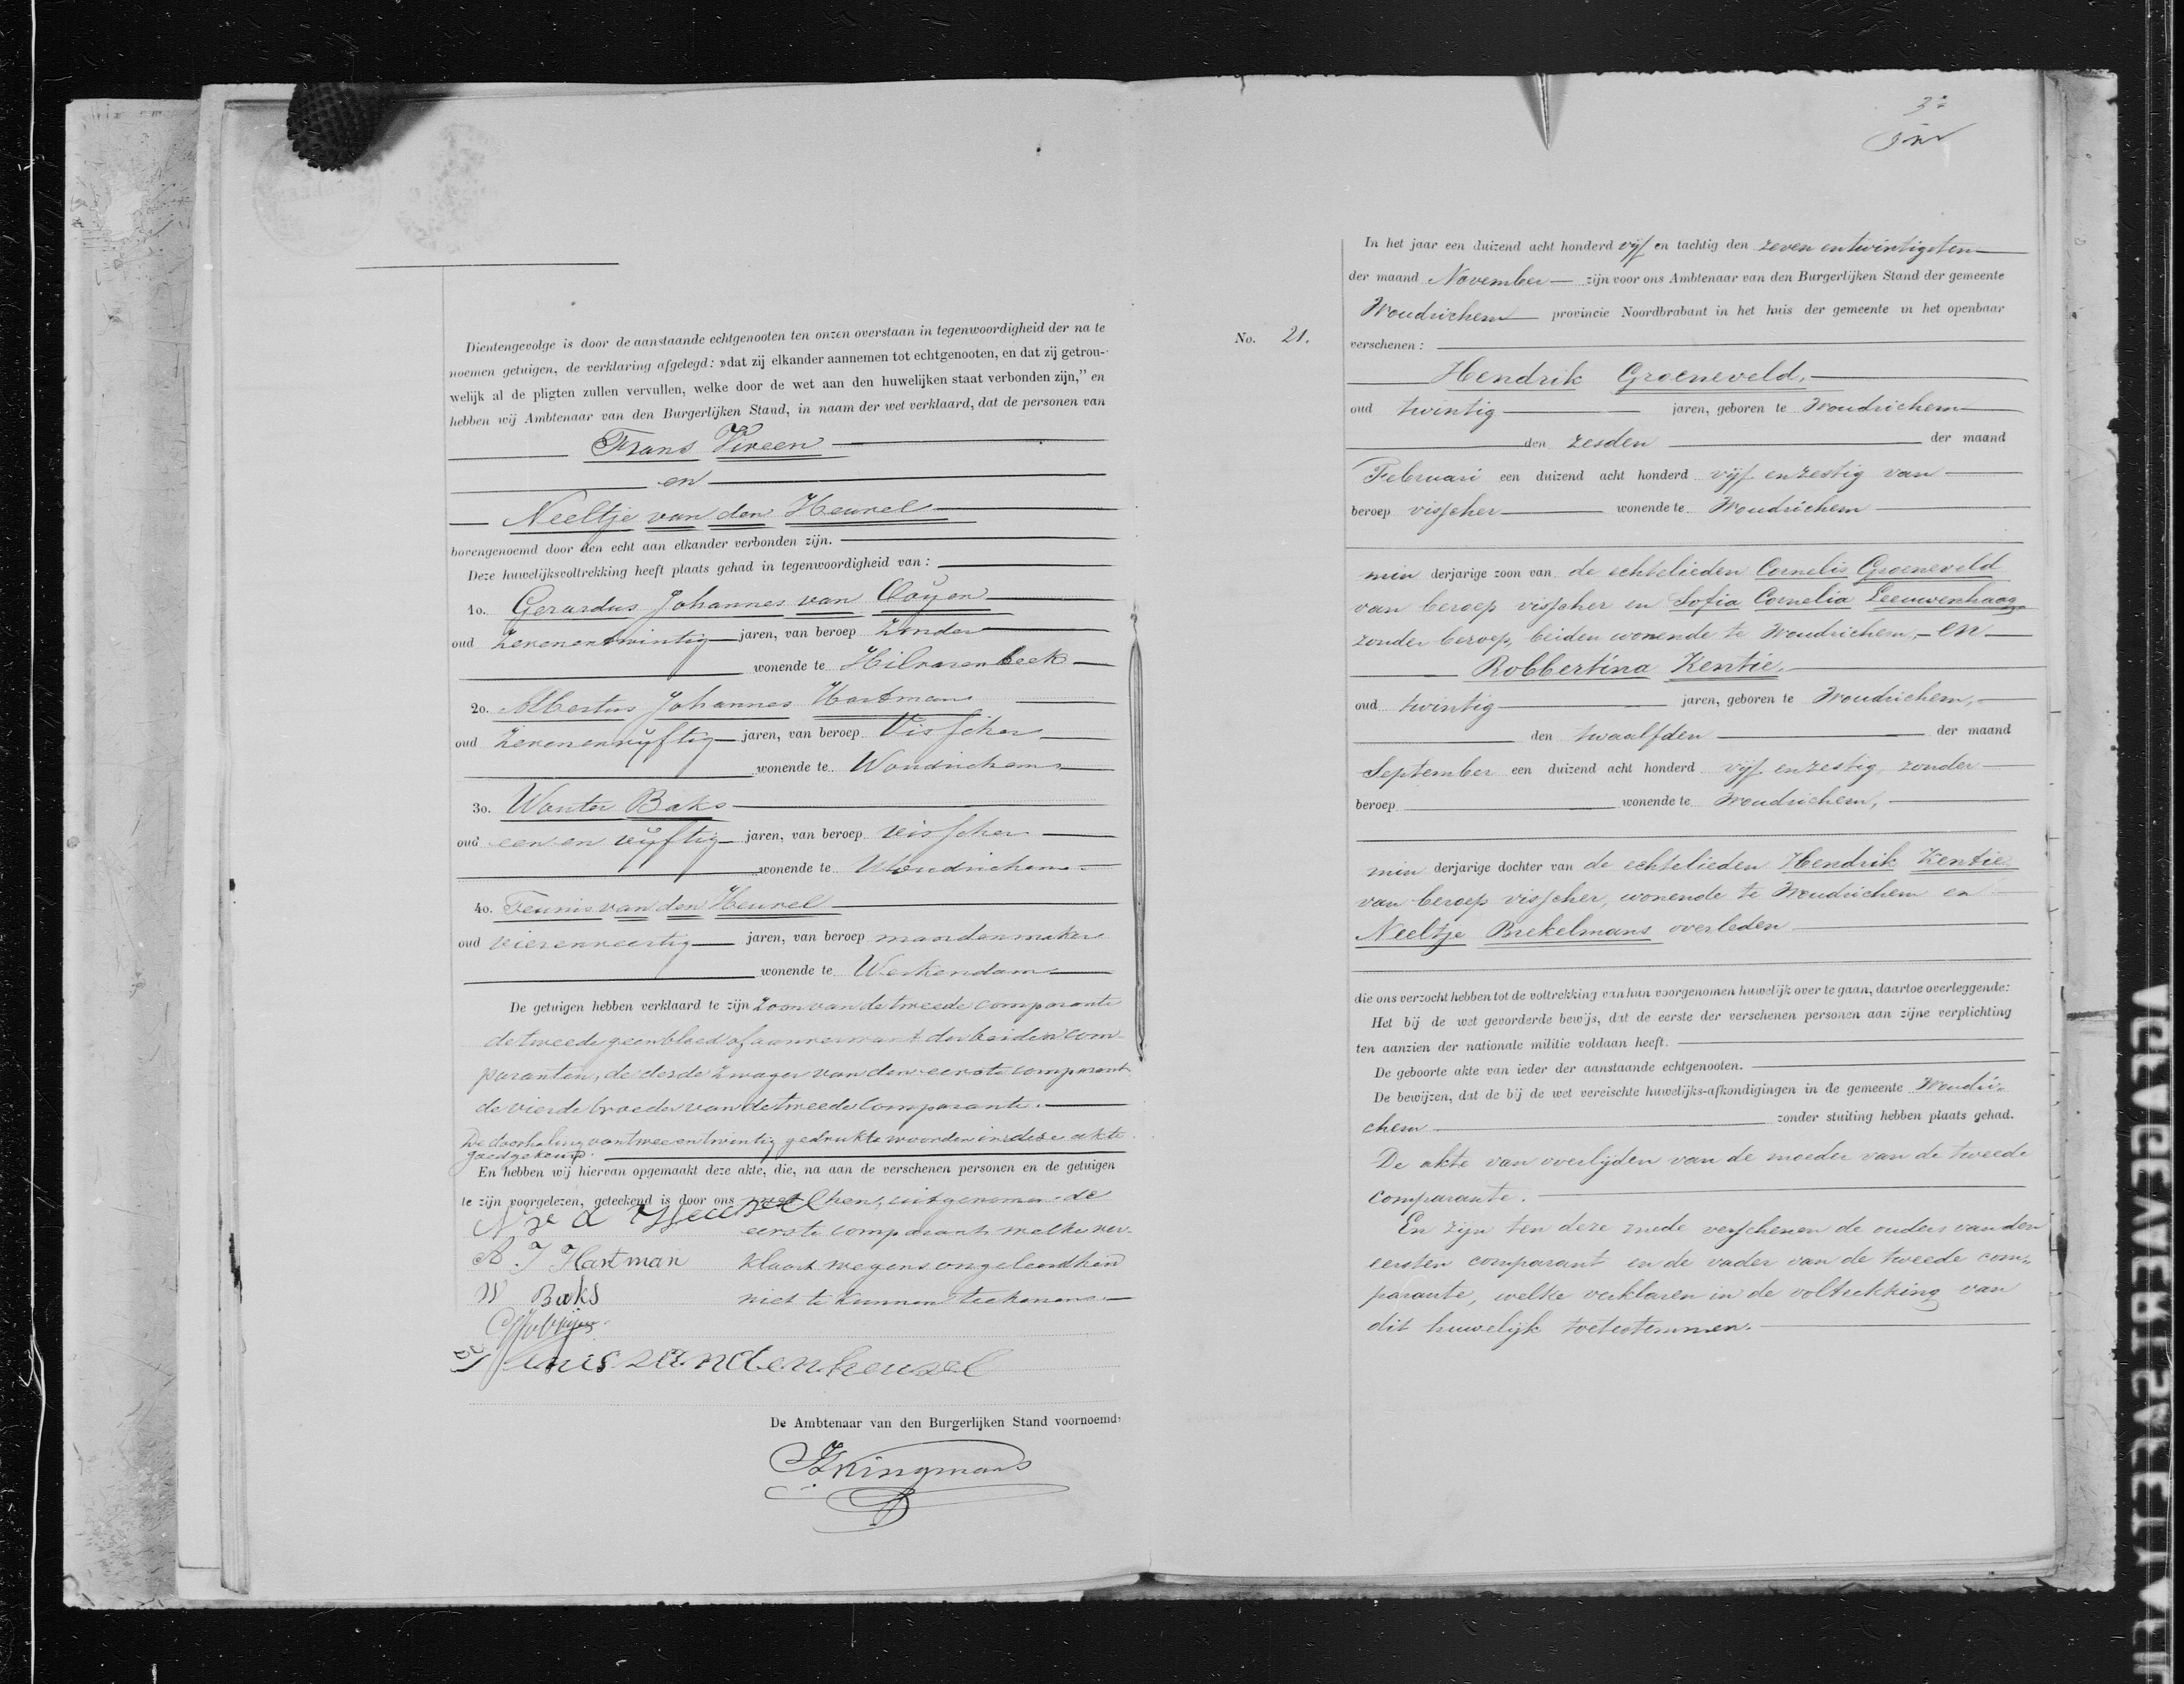 Dientengevolge is door de aanstaande echtgenooten ten onzen overstaan in tegenwoordigheid der na te
noemen getuigen, de verklaring afgelegd: »dat zij elkander aannemen tot echtgenooten, en dat zij getrou-
welijk al de pligten zullen vervullen, welke door de wet aan den huwelijken staat verbonden zijn,” en
hebben wij Ambtenaar van den Burgerlijken Stand, in naam der wet verklaard, dat de personen van
Frans Vireen
en
Neeltje van den Heuvel
bovengenoemd door den echt aan elkander verbonden zijn.
Deze huwelijksvoltrekking heeft plaats gehad in tegenwoordigheid van:
1o. Gerardus Johannes van
oud zevenentwintig jaren, van beroep zonder
wonende te Hilvarenbeek
2o. Albertus Johannes Hartman
oud zevenenvijftig jaren, van beroep Visscher
wonende te Woudrichem
3o. Wouter Baks
oud een en vijftig jaren, van beroep visscher
wonende te Woudrichem
4o. Teunis van den Heuvel
oud vierenveertig jaren, van beroep mandenmaker
wonende te Werkendam
De getuigen hebben verklaard te zijn zoon van de tweede comparante
de tweede geen bloed of aanverwant der beiden com-
paranten, de derde zwager van den eerste comparant
de vierde broeder van de tweede comparante.
De doorhaling van twee en twintig gedrukte woorden in deze akte
goedgekeurd.
En hebben wij hiervan opgemaakt deze akte, die, na aan de verschenen personen en de getuigen
te zijn voorgelezen, geteekend is door ons met hen, uitgenomen de
eerste comparant welke ver-
A. J Hartman klaart wegens ongeleerdheid
W Baks niet te kunnen teekenen.
Teunis van den heuvel
De Ambtenaar van den Burgerlijken Stand voornoemd,
Kingmans
37
No. 21.
In het jaar een duizend acht honderd vijf en tachtig den zeven entwintigsten
der maand November zijn voor ons Ambtenaar van den Burgerlijken Stand der gemeente
Woudrichem provincie Noordbrabant in het huis der gemeente in het openbaar
verschenen:
Hendrik Groeneveld,
oud twintig jaren, geboren te Woudrichem
den zesden der maand
Februari een duizend acht honderd vijf enzestig van
beroep visscher wonende te Woudrichem
min derjarige zoon van de echtelieden Cornelis Groeneveld
van beroep visscher en Sofia Cornelia Leeuwenhaag
zonder beroep, beiden wonende te Woudrichem, - en
Robbertina Kentie,
oud twintig jaren, geboren te Woudrichem,
den twaalfden der maand
September een duizend acht honderd vijf enzestig, zonder
beroep wonende te Woudrichem,
min derjarige dochter van de echtelieden Hendrik Kentie
van beroep visscher, wonende te Woudrichem en
Neeltje Brekelmans overleden
die ons verzocht hebben tot de voltrekking van hun voorgenomen huwelijk over te gaan, daartoe overleggende:
Het bij de wet gevorderde bewijs, dat de eerste der verschenen personen aan zijne verplichting
ten aanzien der nationale militie voldaan heeft.
De geboorte akte van ieder der aanstaande echtgenooten.
De bewijzen, dat de bij de wet vereischte huwelijks-afkondigingen in de gemeente Woudri=
chem zonder stuiting hebben plaats gehad.
De akte van overlijden van de moeder van de tweede
comparante.
En zijn ten deze mede verschenen de ouders van den
eersten comparant en de vader van de tweede com=
parante, welke verklaren in de voltrekking van
dit huwelijk toetestemmen.